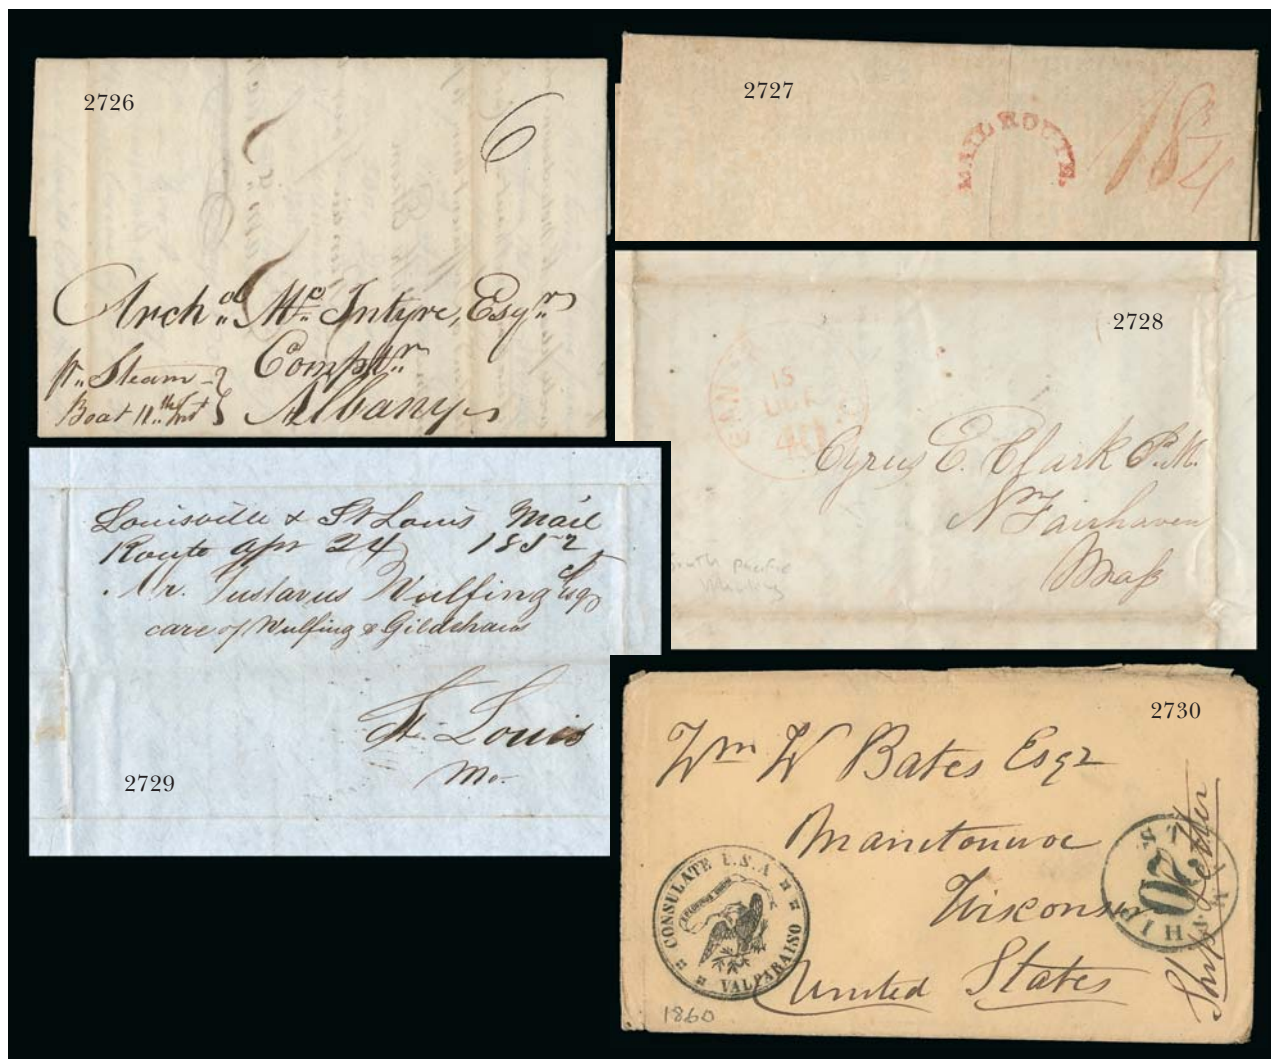 2726
6
Archd. Mc. Intyre, Esqr.
Comptr.
pr. Steam-
Boat 11th Inst
Albany
2727
RAIL ROUTE.
18 3/4
2728
15
40
Cyrus E. Clark P.M.
N Fairhaven
Mass
South Pacific
Louisville & St Louis Mail
Route Apr 24 1852
Mr. Gustavus Wulfing Esq
care of Wulfing & Gildehaus
St. Louis
Mo.
2729
2730
Wm W Bates Esqr
Manitowoc
Wisconsin
United States
Ship Letter
SHIP
20
CONSULATE U.S.A
VALPARAISO
1860